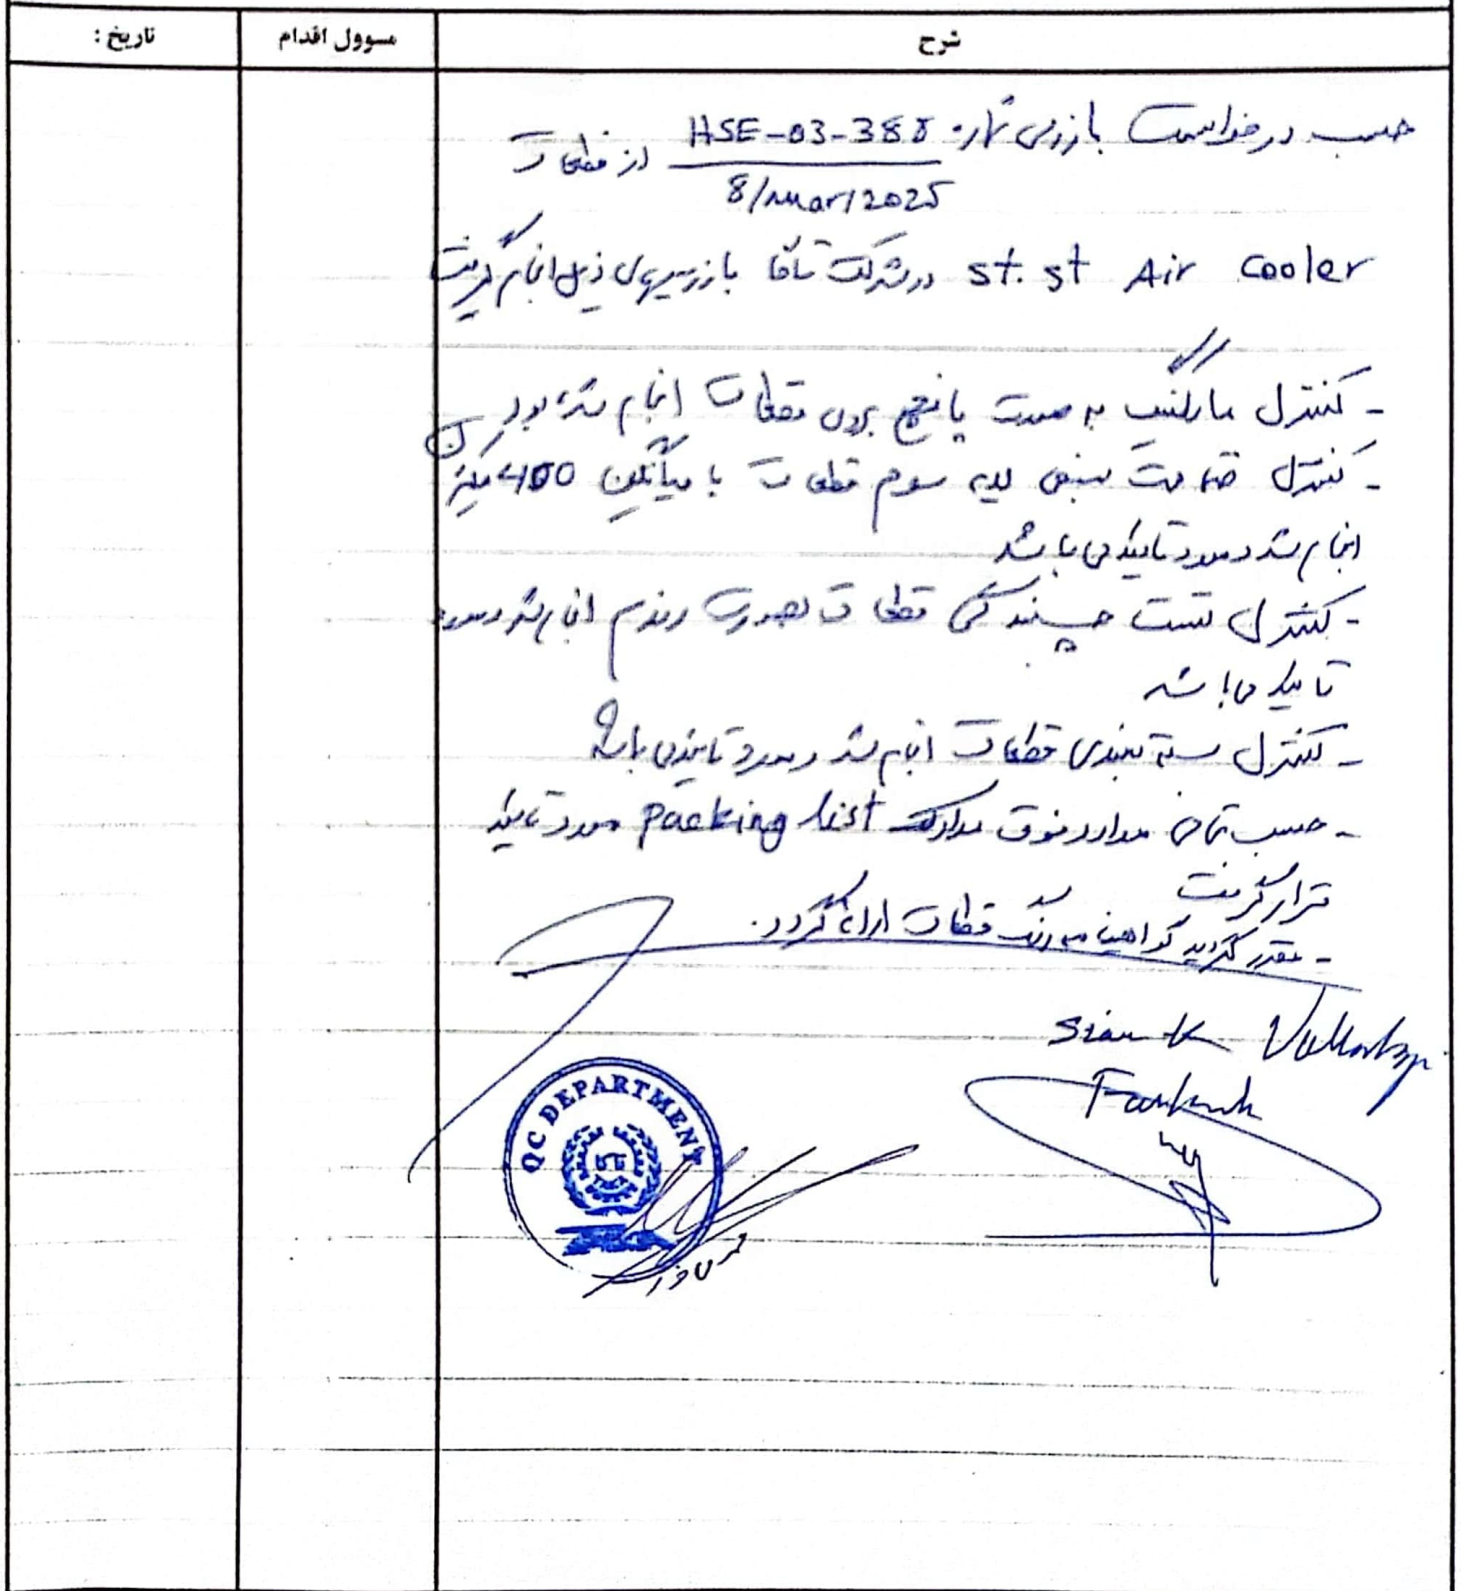 شرح
مسوول اقدام
تاریخ :
حسب درخواست بازرسی شماره HSE-03-388 از قطعات
8/mar/2025
st.st Air Cooler در شرکت تاگا بازرسیهای ذیل انجام گرفت
- کنترل مارکینگ به صورت پانچ بروی قطعات انجام شده بود
- کنترل ضخامت سنجی لایه سوم قطعات با میانگین 400 میکرن
انجام شد و مورد تایید می باشد
- کنترل تست چسبندگی قطعات بصورت رندم انجام شد و مورد
تایید می باشد
- کنترل بسته بندی قطعات انجام شد و مورد تایید می باشد
- حسب تمامی موارد فوق مدارک packing list مورد تایید
قرار گرفت
- مقرر گردید گواهینامه رنگ قطعات ارائه گردد.
QC DEPARTMENT